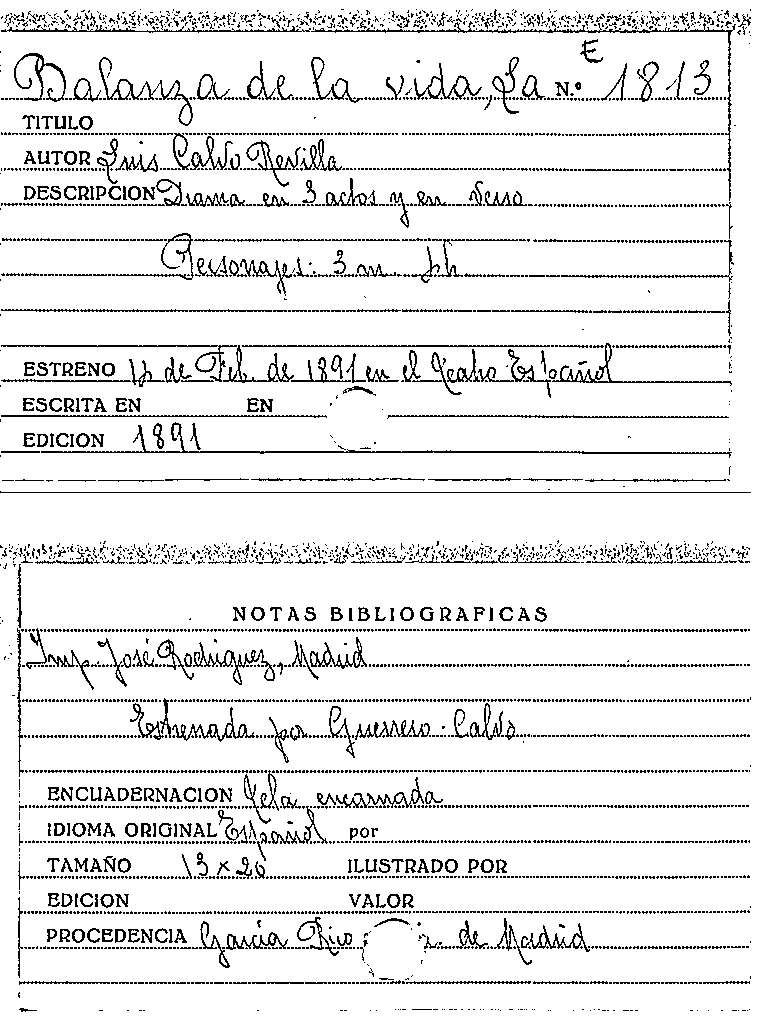 E
Balanza de la vida, La N.º 1813
TITULO
AUTOR Luis Calvo Revilla
DESCRIPCION Drama en 3 actos y en verso
Personajes: 3 m. h.
ESTRENO de Feb. de 1891 en el Teatro Español
ESCRITA EN EN
EDICION 1891
NOTAS BIBLIOGRAFICAS
Imp. José Rodriguez, Madrid
Estrenada por Guerrero - Calvo
ENCUADERNACION Tela encarnada
IDIOMA ORIGINAL Español por
TAMAÑO 13 x 20 ILUSTRADO POR
EDICION VALOR
PROCEDENCIA García Rico de Madrid